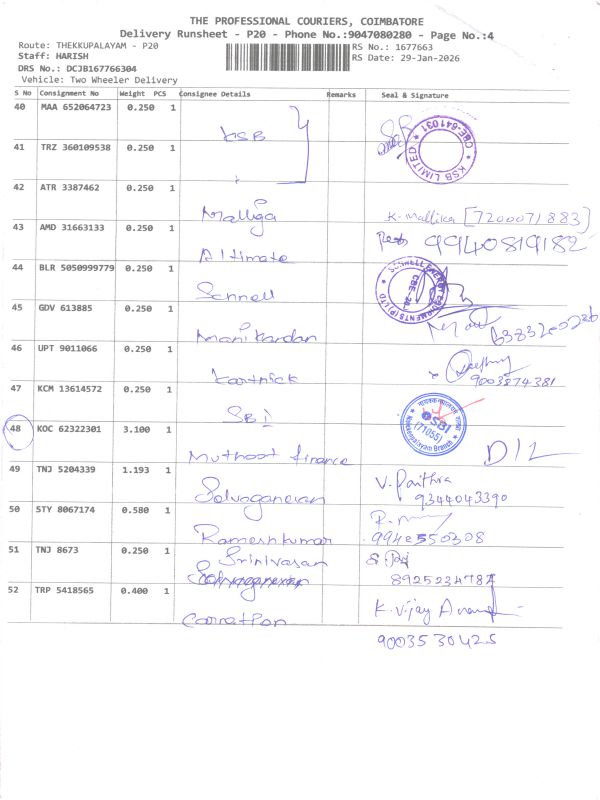 THE PROFESSIONAL COURIERS, COIMBATORE
Delivery Runsheet - P20 - Phone No.:9047080280 - Page No.:4
Route: THEKKUPALAYAM - P20 RS No.: 1677663
Staff: HARISH RS Date: 29-Jan-2026
DRS No.: DCJB167766304
Vehicle: Two Wheeler Delivery
S No Consignment No Weight PCS Consignee Details Remarks Seal & Signature
40 MAA 652064723 0.250 1
KSB
KSB LIMITED * CBE-641031 *
41 TRZ 360109538 0.250 1
42 ATR 3387462 0.250 1
Malliga K. Mallica [7200071883]
43 AMD 31663133 0.250 1
Altimate 9940819182
44 BLR 5050999779 0.250 1
Sennell
45 GDV 613885 0.250 1
Manikandan
46 UPT 9011066 0.250 1
Karthick 9003874381
47 KCM 13614572 0.250 1
SBI
SBI (71055)
48 KOC 62322301 3.100 1
Muthoot finance D/L
49 TNJ 5204339 1.193 1
Selvaganesan V. Pavithra
9344043390
50 STY 8067174 0.580 1
Rameshkumar 9942550308
51 TNJ 8673 0.250 1
Srinivasan
8925234787
52 TRP 5418565 0.400 1
K. Vijay Anand
9003530425